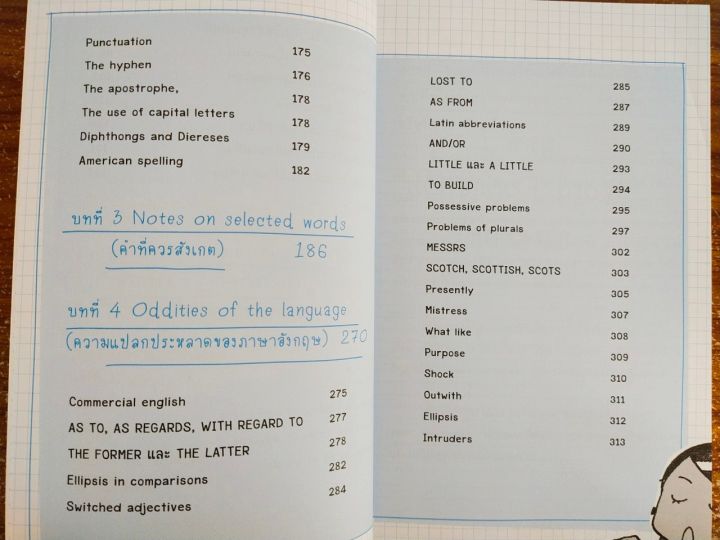 Punctuation 175
The hyphen 176
The apostrophe, 178
The use of capital letters 178
Diphthongs and Diereses 179
American spelling 182
บทที่ 3 Notes on selected words
(คำที่ควรสังเกต) 186
บทที่ 4 Oddities of the language
(ความแปลกประหลาดของภาษาอังกฤษ) 270
Commercial english 275
AS TO, AS REGARDS, WITH REGARD TO 277
THE FORMER และ THE LATTER 278
Ellipsis in comparisons 282
Switched adjectives 284
LOST TO 285
AS FROM 287
Latin abbreviations 289
AND/OR 290
LITTLE และ A LITTLE 293
TO BUILD 294
Possessive problems 295
Problems of plurals 297
MESSRS 302
SCOTCH, SCOTTISH, SCOTS 303
Presently 305
Mistress 307
What like 308
Purpose 309
Shock 310
Outwith 311
Ellipsis 312
Intruders 313